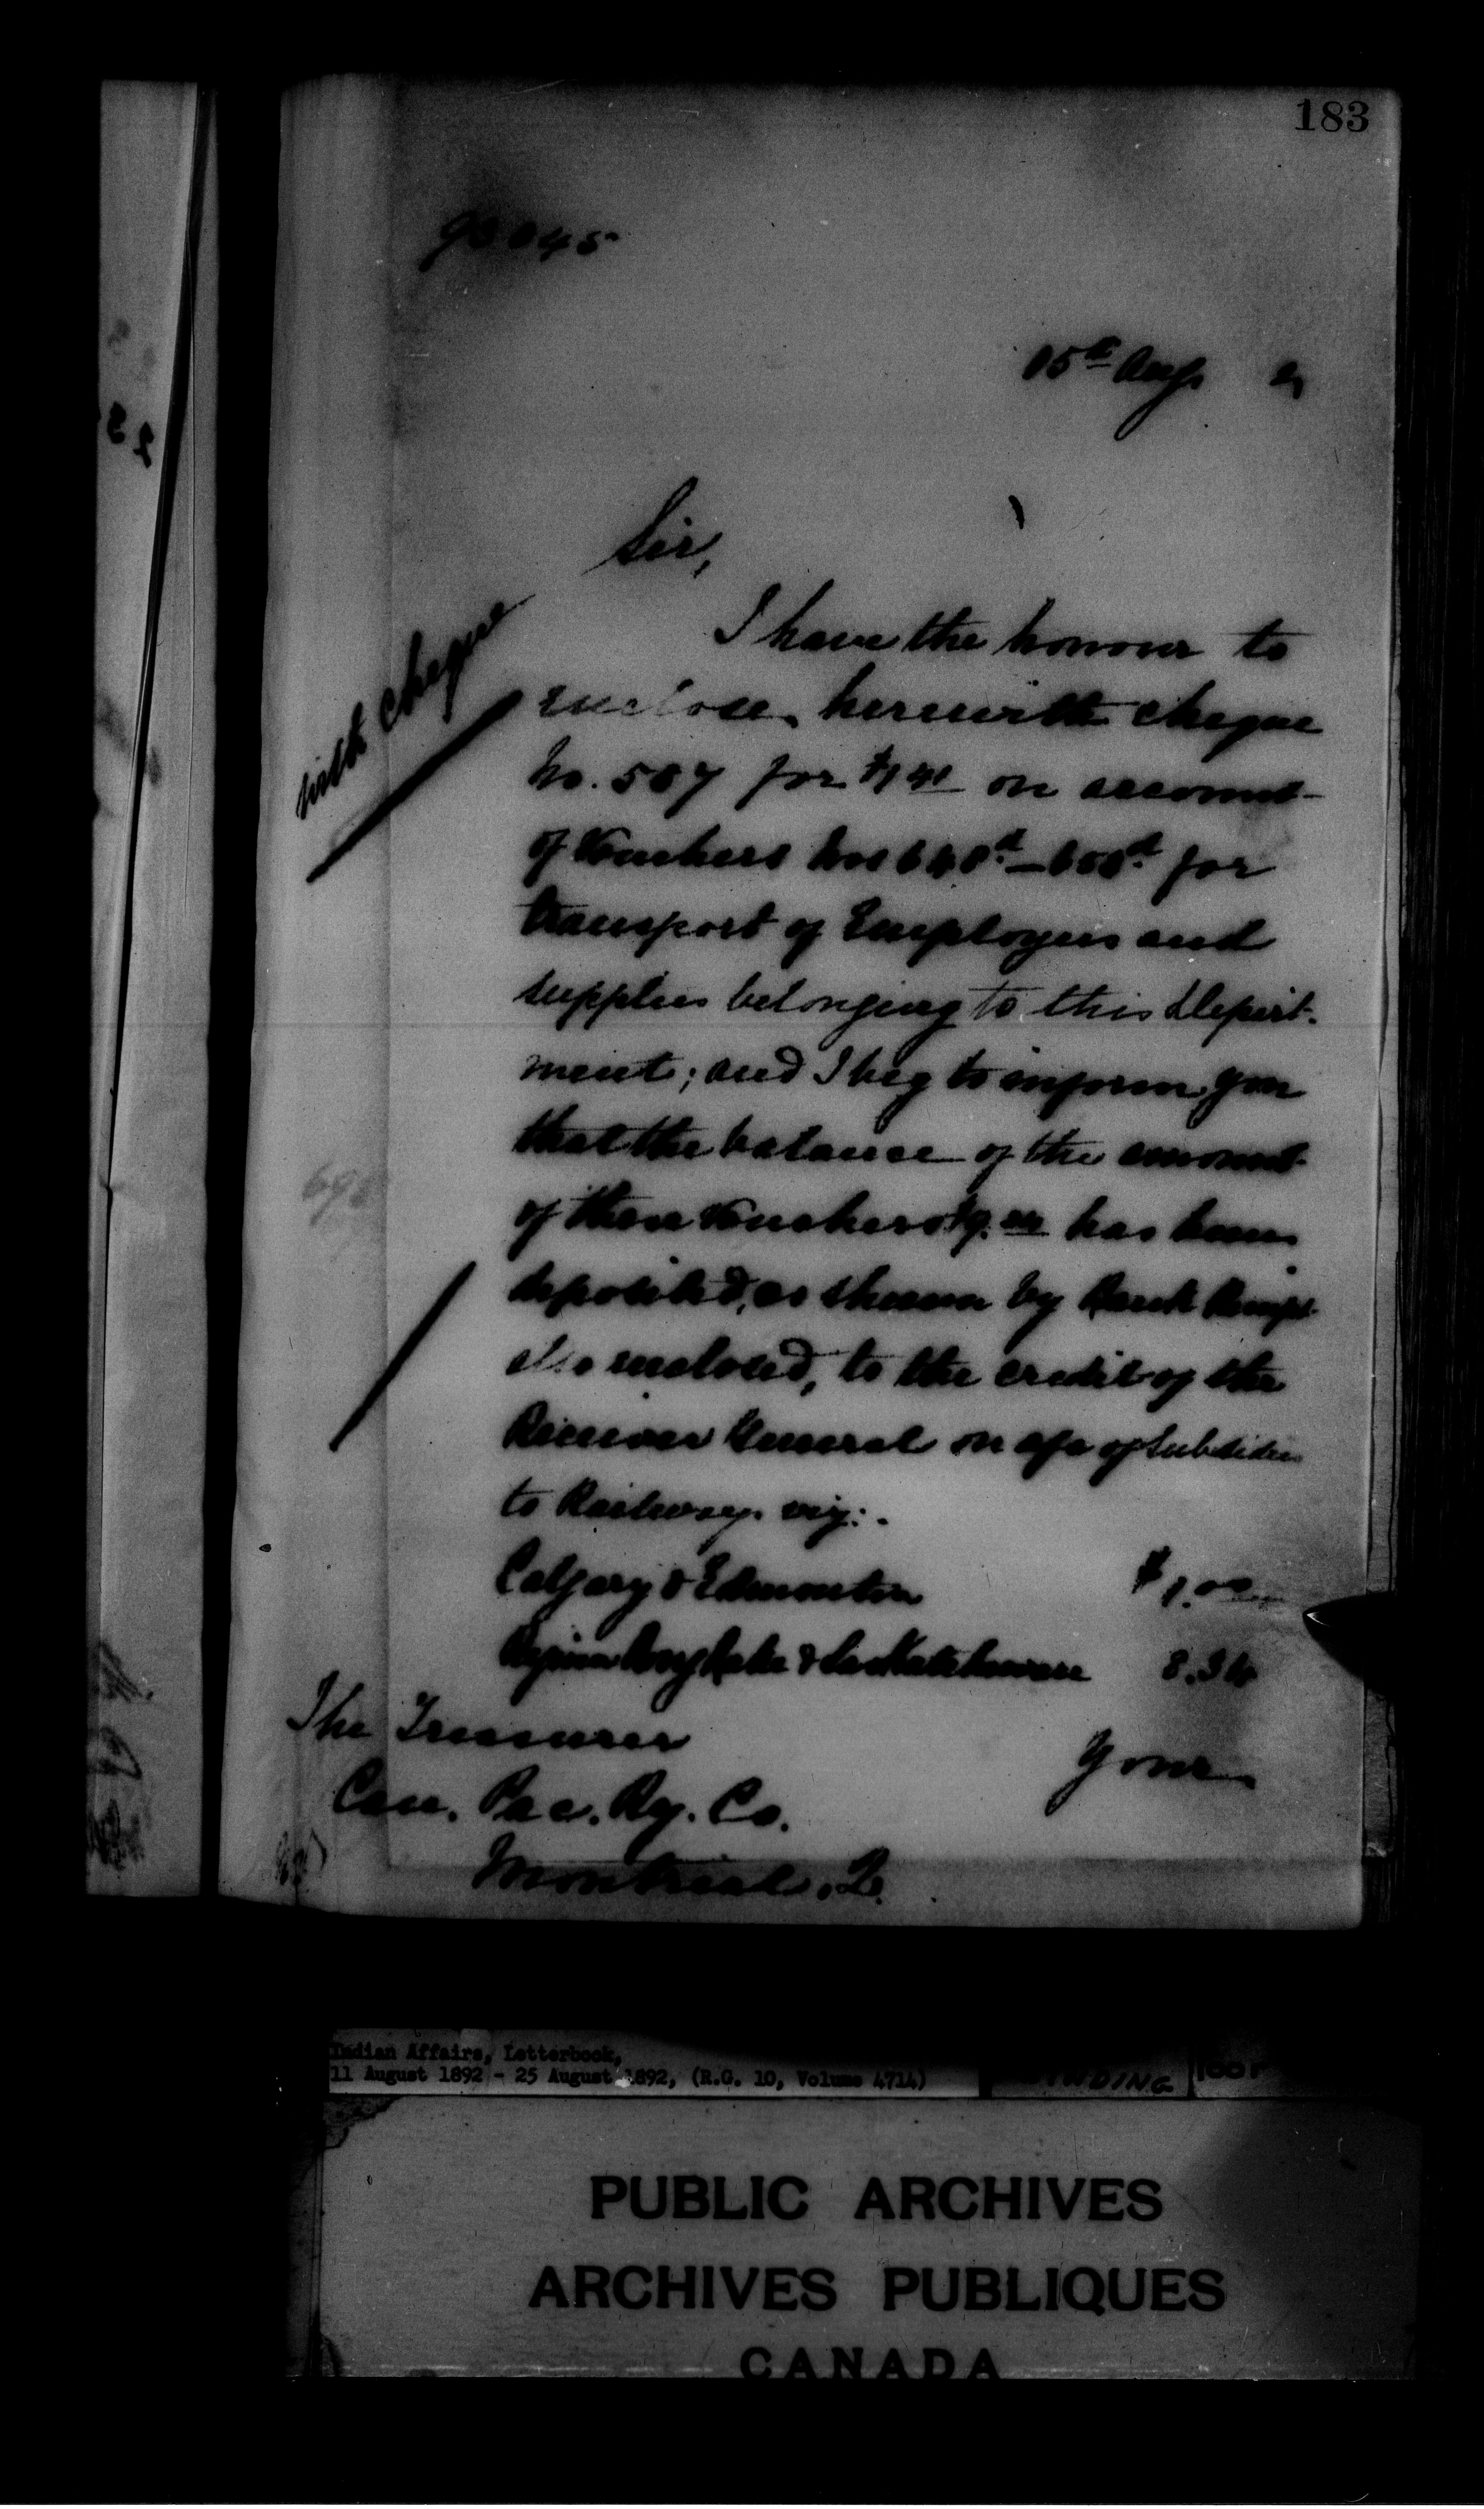 183
15th Aug
Sir,
I have the honour to
enclose herewith cheque
No. 507 for on account
of Vouchers for
transport of Employees and
supplies belonging to this Depart-
ment; and I beg to inform you
that the balance of the amount
of these Vouchers has been
deposited, as shewn by Bank Receipt
enclosed, to the credit of the
Receiver General on a/c of Subsidies
to Railways viz:.
Calgary & Edmonton $1.00
Regina Long Lake & Saskatchewan 8.
Your
The Treasurer
Can. Pac. Ry. Co.
Montreal, Q.
with cheque
Indian Affairs, Letterbook,
11 August 1892 - 25 August 1892, (R.G. 10, Volume 4714)
PUBLIC ARCHIVES
ARCHIVES PUBLIQUES
CANADA